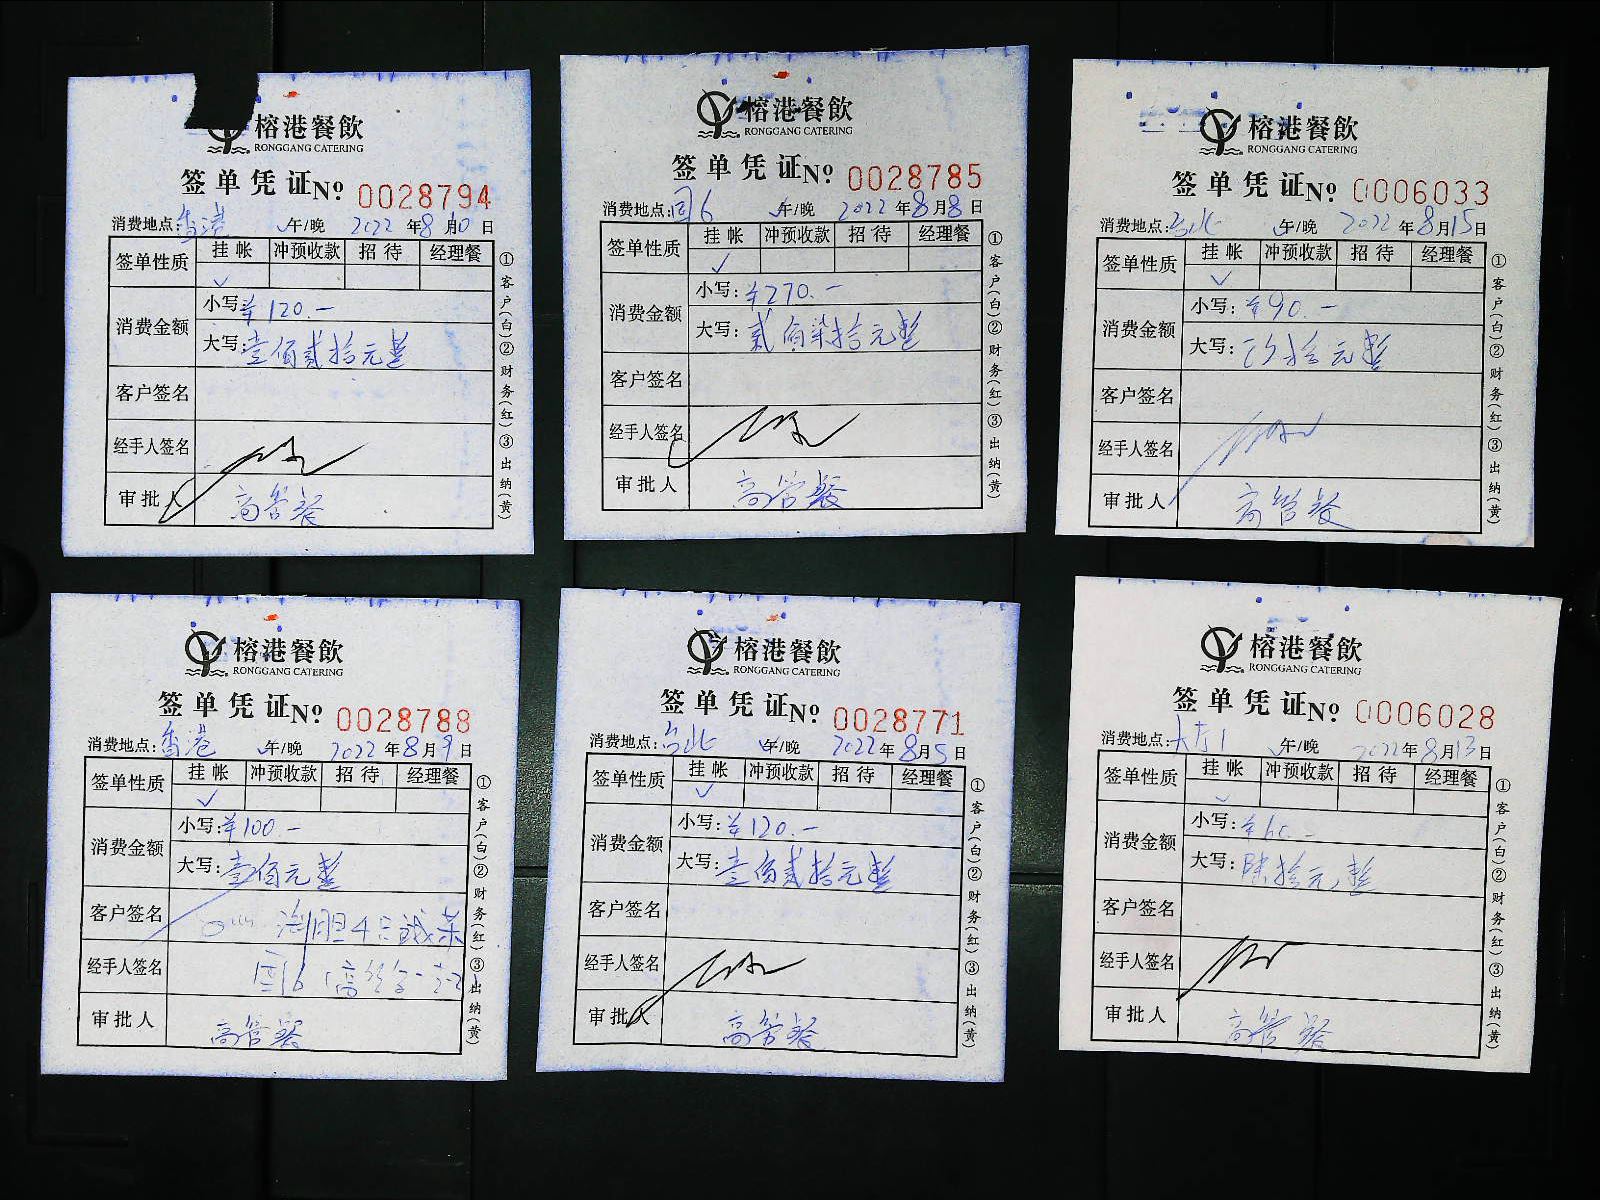 榕港餐飲
RONGGANG CATERING
签单凭证 No 0028794
消费地点: 香港 ✓午/晚 2022 年 8 月 10 日
签单性质 挂帐 冲预收款 招待 经理餐
✓
消费金额 小写: ¥120.—
大写: 壹佰贰拾元整
客户签名
经手人签名
审批人 高管餐
①客户(白)②财务(红)③出纳(黄)
榕港餐飲
RONGGANG CATERING
签单凭证 No 0028785
消费地点: 园6 ✓午/晚 2022 年 8 月 8 日
签单性质 挂帐 冲预收款 招待 经理餐
✓
消费金额 小写: ¥270.—
大写: 贰佰柒拾元整
客户签名
经手人签名
审批人 高管餐
①客户(白)②财务(红)③出纳(黄)
榕港餐飲
RONGGANG CATERING
签单凭证 No 0006033
消费地点: 台北 ✓午/晚 2022 年 8 月 15 日
签单性质 挂帐 冲预收款 招待 经理餐
✓
消费金额 小写: ¥90.—
大写: 玖拾元整
客户签名
经手人签名
审批人 高管餐
①客户(白)②财务(红)③出纳(黄)
榕港餐飲
RONGGANG CATERING
签单凭证 No 0028788
消费地点: 香港 ✓午/晚 2022 年 8 月 9 日
签单性质 挂帐 冲预收款 招待 经理餐
✓
消费金额 小写: ¥100.—
大写: 壹佰元整
客户签名
经手人签名
审批人 高管餐
①客户(白)②财务(红)③出纳(黄)
榕港餐飲
RONGGANG CATERING
签单凭证 No 0028771
消费地点: 台北 ✓午/晚 2022 年 8 月 5 日
签单性质 挂帐 冲预收款 招待 经理餐
✓
消费金额 小写: ¥120.—
大写: 壹佰贰拾元整
客户签名
经手人签名
审批人 高管餐
①客户(白)②财务(红)③出纳(黄)
榕港餐飲
RONGGANG CATERING
签单凭证 No 0006028
消费地点: 大厅1 ✓午/晚 2022 年 8 月 13 日
签单性质 挂帐 冲预收款 招待 经理餐
✓
消费金额 小写: ¥60.—
大写: 陆拾元整
客户签名
经手人签名
审批人 高管餐
①客户(白)②财务(红)③出纳(黄)